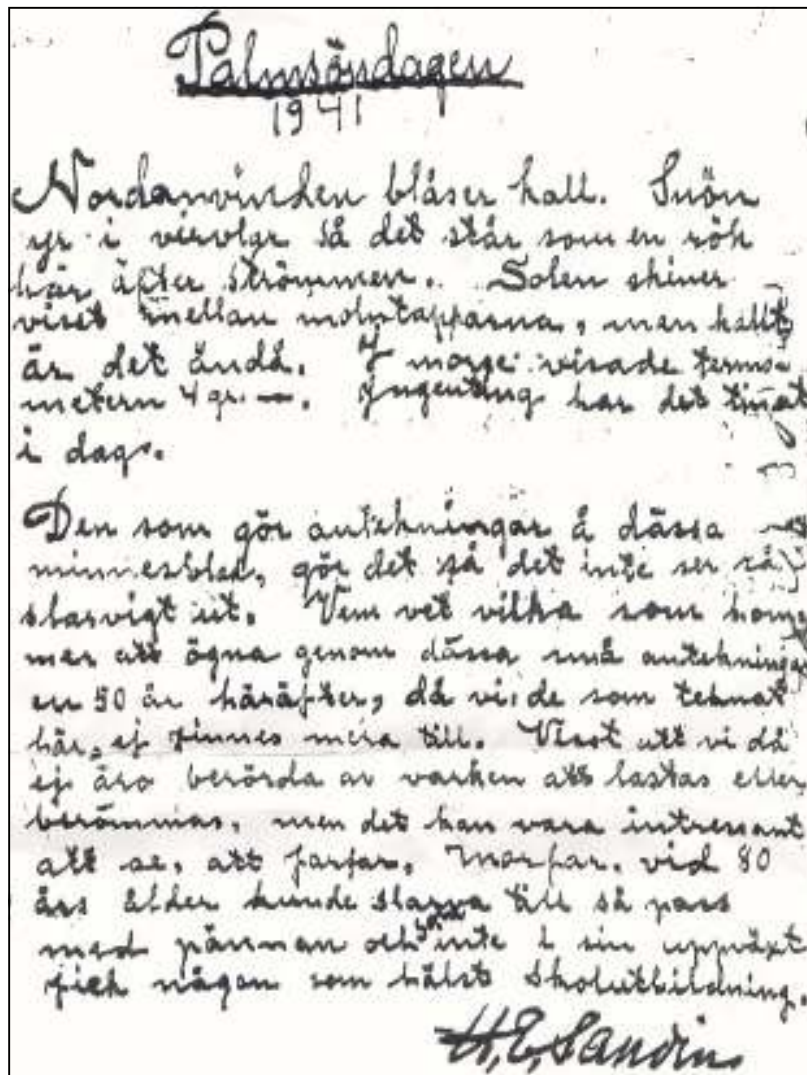 Palmsöndagen
1941
Nordanvinden blåser kall. Snön
yr i virvlar så det står som en rök
här äfter strömmen. Solen skiner
visst mellan molntapparna, men kallt
är det ändå. I morse visade termo-
metern 4 gr. —. Ingenting har det tinat
i dag.
Den som gör antekningar å dässa
minnesblad, gör det så det inte ser så
slarvigt ut. Vem vet vilka som kom-
mer att ögna genom dässa små antekningar
en 50 år häräfter, då vi, de som teknat
här, ej finnes mera till. Visst att vi då
ej äro berörda av varken att lastas eller
berömmas, men det kan vara intressant
att se, att farfar, morfar, vid 80
års ålder kunde slarva till så pass
med pännan och som inte i sin uppväxt
fick någon som hälst skolutbildning.
H, E, Sandin